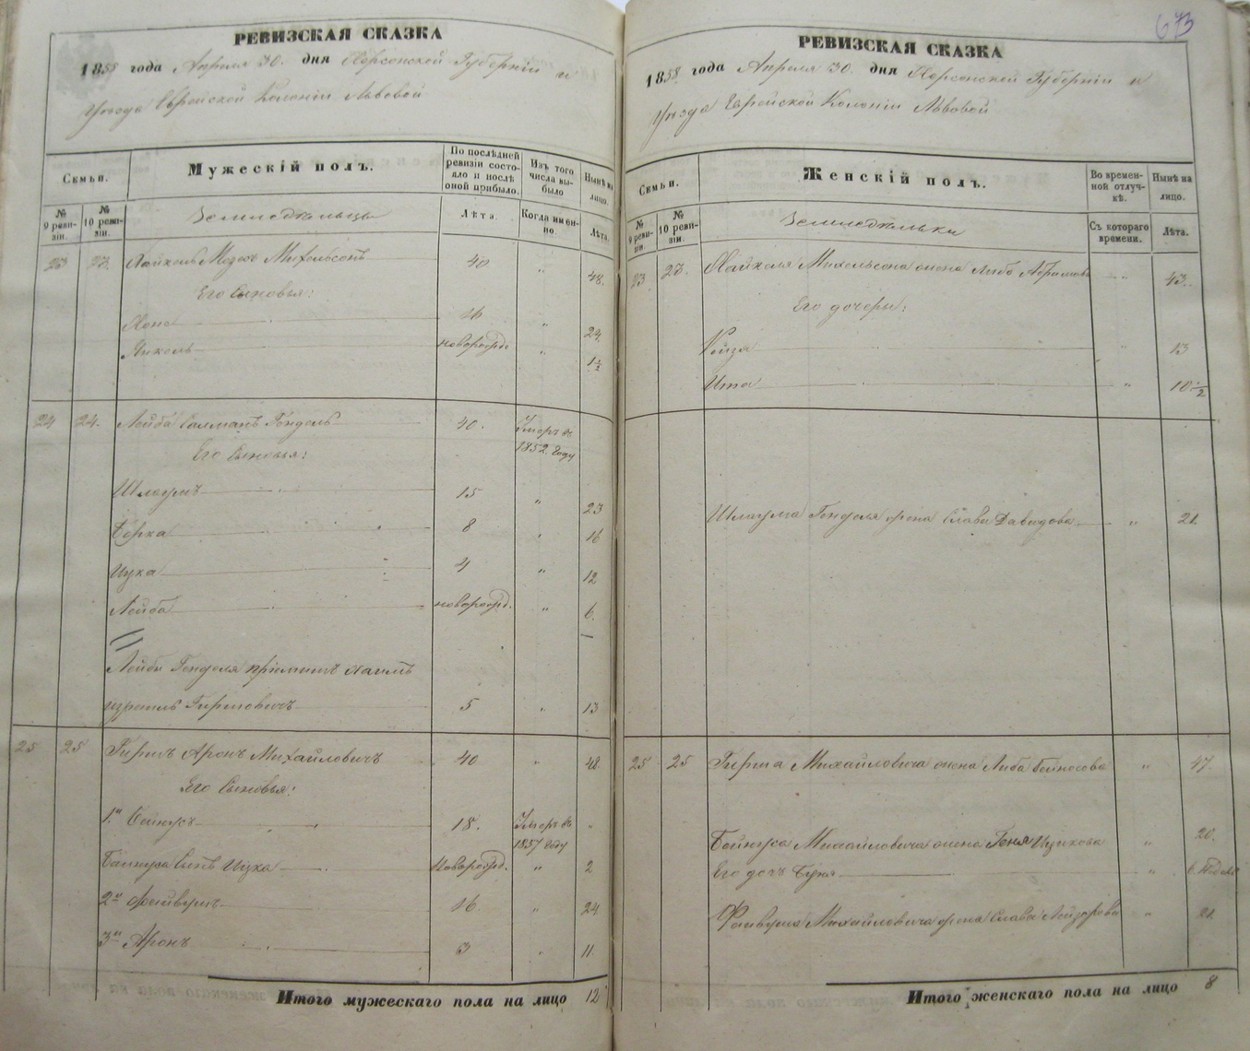 РЕВИЗСКАЯ СКАЗКА
1858 года Апреля 30. дня Херсонской Губерніи и
Уѣзда Еврейской Колоніи Львовой
Семьи.
Мужескій полъ.
По послѣдней ревизіи состояло и послѣ оной прибыло.
Изъ того числа выбыло
Нынѣ на лицо.
№ 9 ревизіи.
№ 10 ревизіи.
Земледѣльцы
Лѣта.
Когда именно.
Лѣта.
23 23. Михельсонъ 40 " 48.
Его Сыновья:
16 " 24
новорожд. " 1½
24 24. Лейба Залманъ Гендель 40. Умеръ въ 1852. году
Его Сыновья:
Шлаумъ 15 " 23
Берка 8 " 16
Ицка 4 " 12
Лейба новорожд. " 6.
Лейбы Генделя пріемышъ Хаимъ
Израиль Гиршовичъ 5 " 13
25 25 Гиршъ Аронъ Михайловичъ 40 " 48.
Его Сыновья:
1й Бейнусъ 18. Умеръ въ 1857 году "
Бейнуса Сынъ Ицка Новорожд. " 2
2й Файвушъ 16 " 24
3й Аронъ 3 " 11.
Итого мужескаго пола на лицо 12
673
РЕВИЗСКАЯ СКАЗКА
1858. года Апреля 30. дня Херсонской Губерніи и
Уѣзда Еврейской Колоніи Львовой
Семьи.
Женскій полъ.
Во временной отлучкѣ.
Нынѣ на лицо.
№ 9 ревизіи.
№ 10 ревизіи.
Земледѣльки
Съ котораго времени.
Лѣта.
23 23. Михельсона жена Либа Абрамова " 43.
Его дочери:
Рейза " 13
Ита " 10½
Шлаума Генделя жена Слава Давидова " 21.
25 25 Гирша Михайловича жена Либа Бейносова " 47.
Бейнуса Михайловича жена Геня Ицикова " 20.
Его дочь " 6 недель
Файвуша Михайловича жена Слава Лейзерова " 21.
Итого женскаго пола на лицо 8